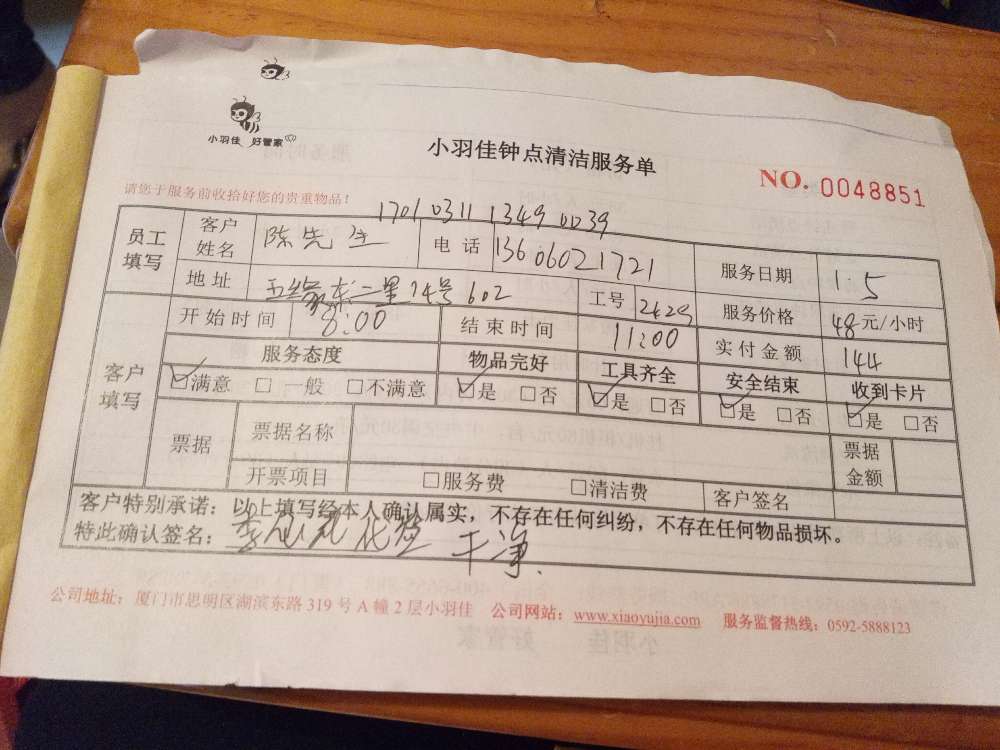 小羽佳 好管家
小羽佳钟点清洁服务单
NO. 0048851
请您于服务前收拾好您的贵重物品!
1701 0311 1349 0039
员工填写 客户姓名 陈先生 电话 13606021721 服务日期 1.5
地址 五缘东二里14号602 工号 2429 服务价格 48元/小时
客户填写 开始时间 8:00 结束时间 11:00 实付金额 144
服务态度 物品完好 工具齐全 安全结束 收到卡片
☑满意 □一般 □不满意 ☑是 □否 ☑是 □否 ☑是 □否 ☑是 □否
票据 票据名称 票据金额
开票项目 □服务费 □清洁费 客户签名
客户特别承诺:以上填写经本人确认属实,不存在任何纠纷,不存在任何物品损坏。
特此确认签名: 干净.
公司地址:厦门市思明区湖滨东路319号A幢2层小羽佳 公司网站:www.xiaoyujia.com 服务监督热线:0592-5888123